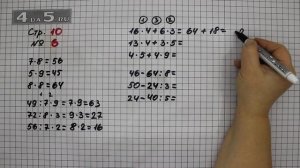 4DA5.RU
Стр. 10
№ 6
7·8=56
5·9=45
8·8=64
1 2
49:7·9=7·9=63
72:8·3=9·3=27
56:7·2=8·2=16
1 3 2
16·4+6·3=64+18=
13·4+3·5=
4·5+4·9=
46-64:8=
50-24:3=
24-40:5=